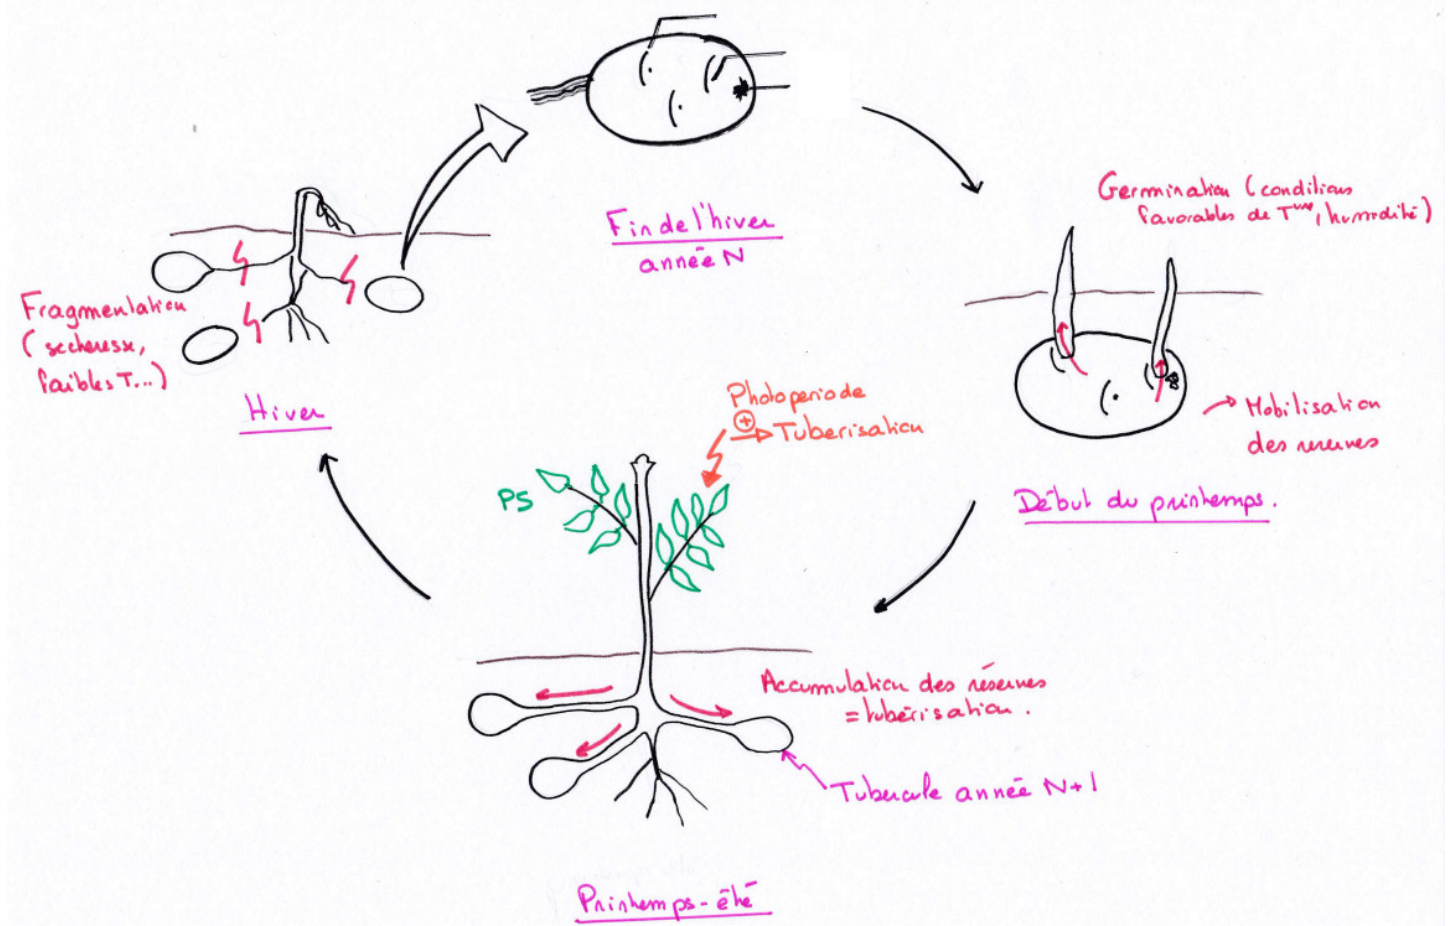 Fin de l'hiver
année N
Germination (conditions
favorables de T^ure, humidité)
Mobilisation
des reserves
Début du printemps.
Photoperiode
⊕
Tuberisation
PS
Accumulation des réserves
= tubérisation.
Tubercule année N+1
Printemps-été
Fragmentation
(secheresse,
faibles T...)
Hiver